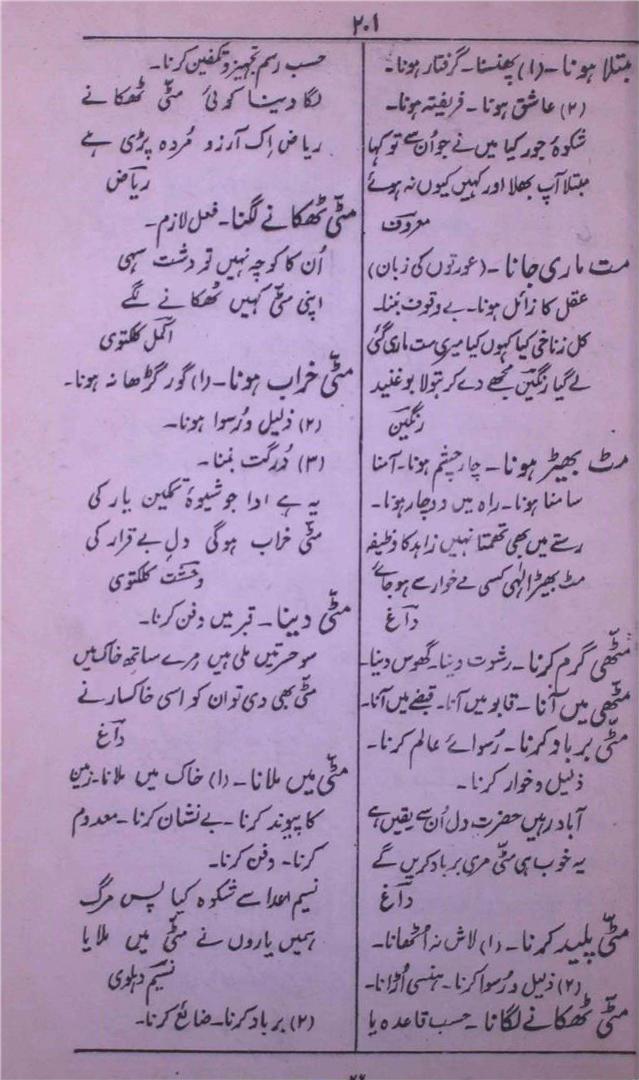 ۲۰۱
مبتلا ہونا۔ (۱) پھنسنا۔ گرفتار ہونا۔
(۲) عاشق ہونا۔ فریفتہ ہونا۔
شکوۂ جور کیا میں نے جو اُن سے تو کہا
مبتلا آپ بھلا اور کہیں کیوں نہ ہوئے
معروفؔ
مت ماری جانا۔ (عورتوں کی زبان)
عقل کا زائل ہونا۔ بے وقوف بننا۔
کل زناخی کیا کہوں کیا میری مت ماری گئی
لے گیا رنگینؔ مجھے دے کر بتولا بوغنید
رنگینؔ
مٹ بھیڑ ہونا۔ چار چشم ہونا۔ آمنا
سامنا ہونا۔ راہ میں دوچار ہونا۔
رستے میں بھی تھمتا نہیں زاہد کا وظیفہ
مٹ بھیڑ الٰہی کسی مے خوار سے ہو جائے
داغؔ
مٹھی گرم کرنا۔ رشوت دینا۔ گھوس دینا۔
مٹھی میں آنا۔ قابو میں آنا۔ قبضے میں آنا۔
مٹّی برباد کرنا۔ رسوائے عالم کرنا۔
ذلیل و خوار کرنا۔
آباد رہیں حضرت دل اُن سے یقیں ہے
یہ خوب ہی مٹّی مری برباد کریں گے
داغؔ
مٹّی پلید کرنا۔ (۱) لاش نہ اُٹھانا۔
(۲) ذلیل و رسوا کرنا۔ ہنسی اُڑانا۔
مٹّی ٹھکانے لگانا۔ حسب قاعدہ یا
حسب رسم تجہیز و تکفین کرنا۔
لگا دینا کوئی مٹّی ٹھکانے
ریاض اِک آرزو مُردہ پڑی ہے
ریاضؔ
مٹّی ٹھکانے لگنا۔ فعل لازم۔
اُن کا کوچہ نہیں تو دشت سہی
اپنی مٹّی کہیں ٹھکانے لگے
اکملؔ کلکتوی
مٹّی خراب ہونا۔ (۱) گور گڑھا نہ ہونا۔
(۲) ذلیل و رسوا ہونا۔
(۳) دُرگت بننا۔
یہ ہے ادا جو شیوۂ تمکین یار کی
مٹّی خراب ہوگی دلِ بے قرار کی
وحشتؔ کلکتوی
مٹّی دینا۔ قبر میں دفن کرنا۔
سو حسرتیں ملی ہیں مرے ساتھ خاک میں
مٹّی بھی دی تو ان کو اسی خاکسار نے
داغؔ
مٹّی میں ملانا۔ (۱) خاک میں ملانا۔ زمین
کا پیوند کرنا۔ بے نشان کرنا۔ معدوم
کرنا۔ دفن کرنا۔
نسیم اعدا سے شکوہ کیا پس مرگ
ہمیں یاروں نے مٹّی میں ملایا
نسیمؔ دہلوی
(۲) برباد کرنا۔ ضائع کرنا۔
۲۶